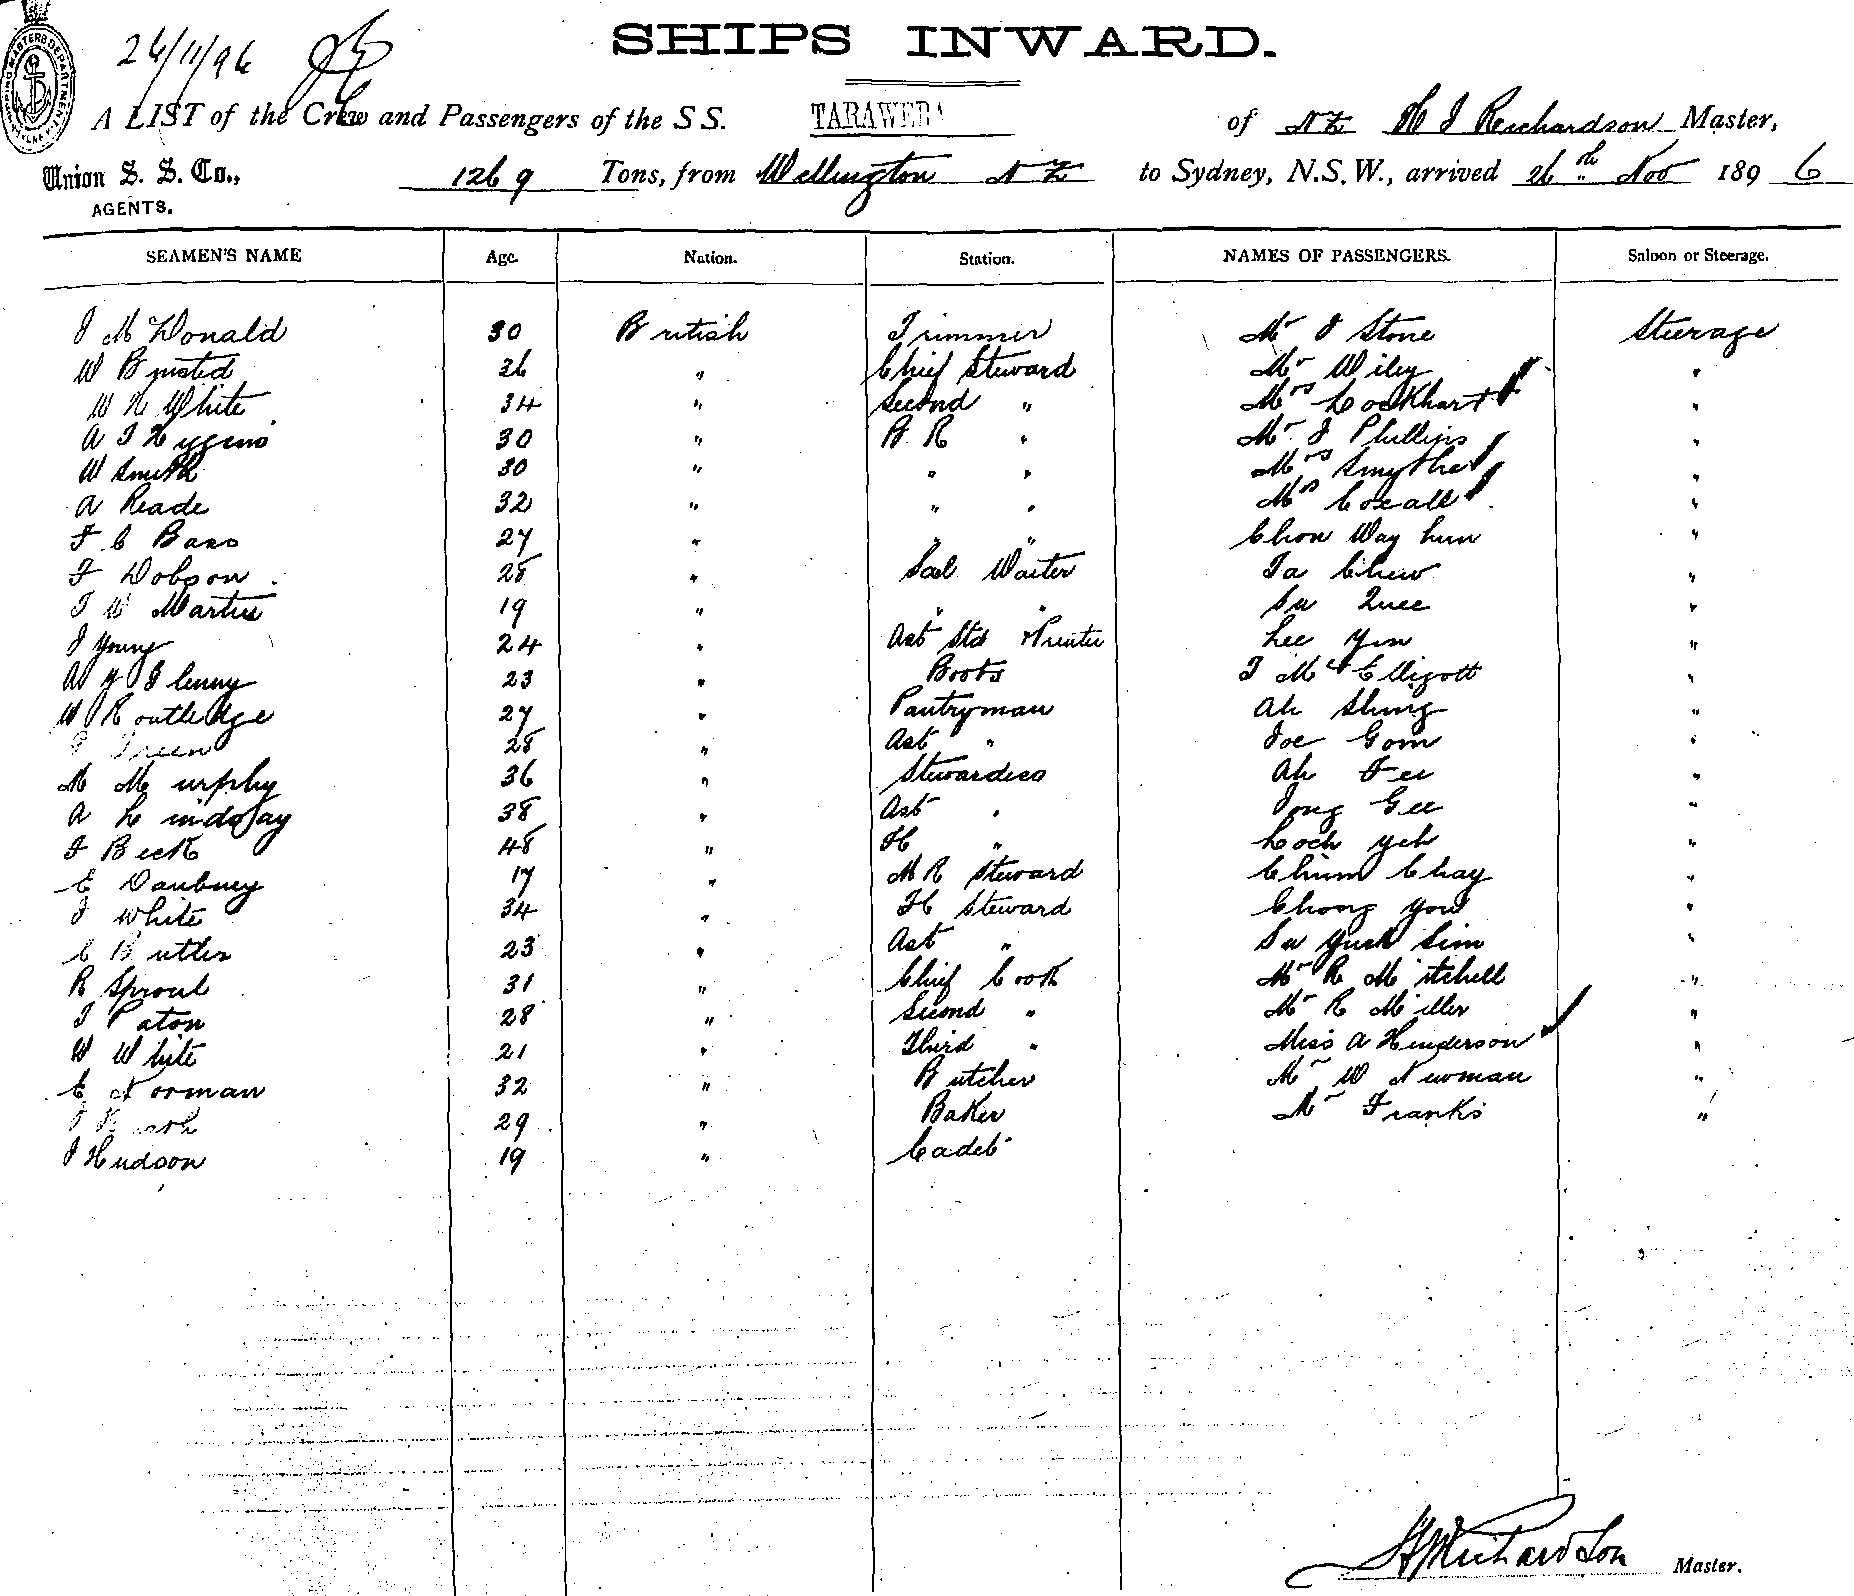 26/11/96
SHIPS INWARD.
A LIST of the Crew and Passengers of the S S. TARAWERA of NZ H J Richardson Master,
Union S. S. Co., 1269 Tons, from Wellington NZ to Sydney, N.S.W., arrived 26th Nov 1896
AGENTS.
SEAMEN'S NAME Age. Nation. Station. NAMES OF PASSENGERS. Saloon or Steerage.
J McDonald 30 British Trimmer Mr J Stone Steerage
W Bristed 26 " Chief Steward Mr Wiley "
W H White 34 " Second " Mrs Lockhart "
A J Higgins 30 " B R " Mr J Phillips "
W Smith 30 " " " Mrs Smythe "
A Reade 32 " " " Mrs Coxall "
F C Bass 27 " " " Chon Way hun "
F Dobson 28 " Sal Waiter Ta Chew "
T W Martin 19 " " " Su Quee "
J Young 24 " Ast Std & Printer Lee Yin "
23 " Boots J McElligott "
W Routledge 27 " Pantryman Ah Shing "
Green 28 " Ast " Joe Gom "
M Murphy 36 " Stewardess Ah Fee "
A Lindsay 38 " Ast " Gee "
J Beck 48 " H " Loch Yeh "
E Daubney 17 " M R Steward Chum Chay "
J White 34 " H Steward Chong You "
C Butler 23 " Ast " Su Yuck Sim "
R Sproul 31 " Chief Cook Mr R Mitchell "
J Paton 28 " Second " Mr R Miller "
W White 21 " Third " Miss A Henderson "
E Norman 32 " Butcher Mr W Newman "
29 " Baker Mr Franks "
J Hudson 19 " Cadet
H J Richardson Master.